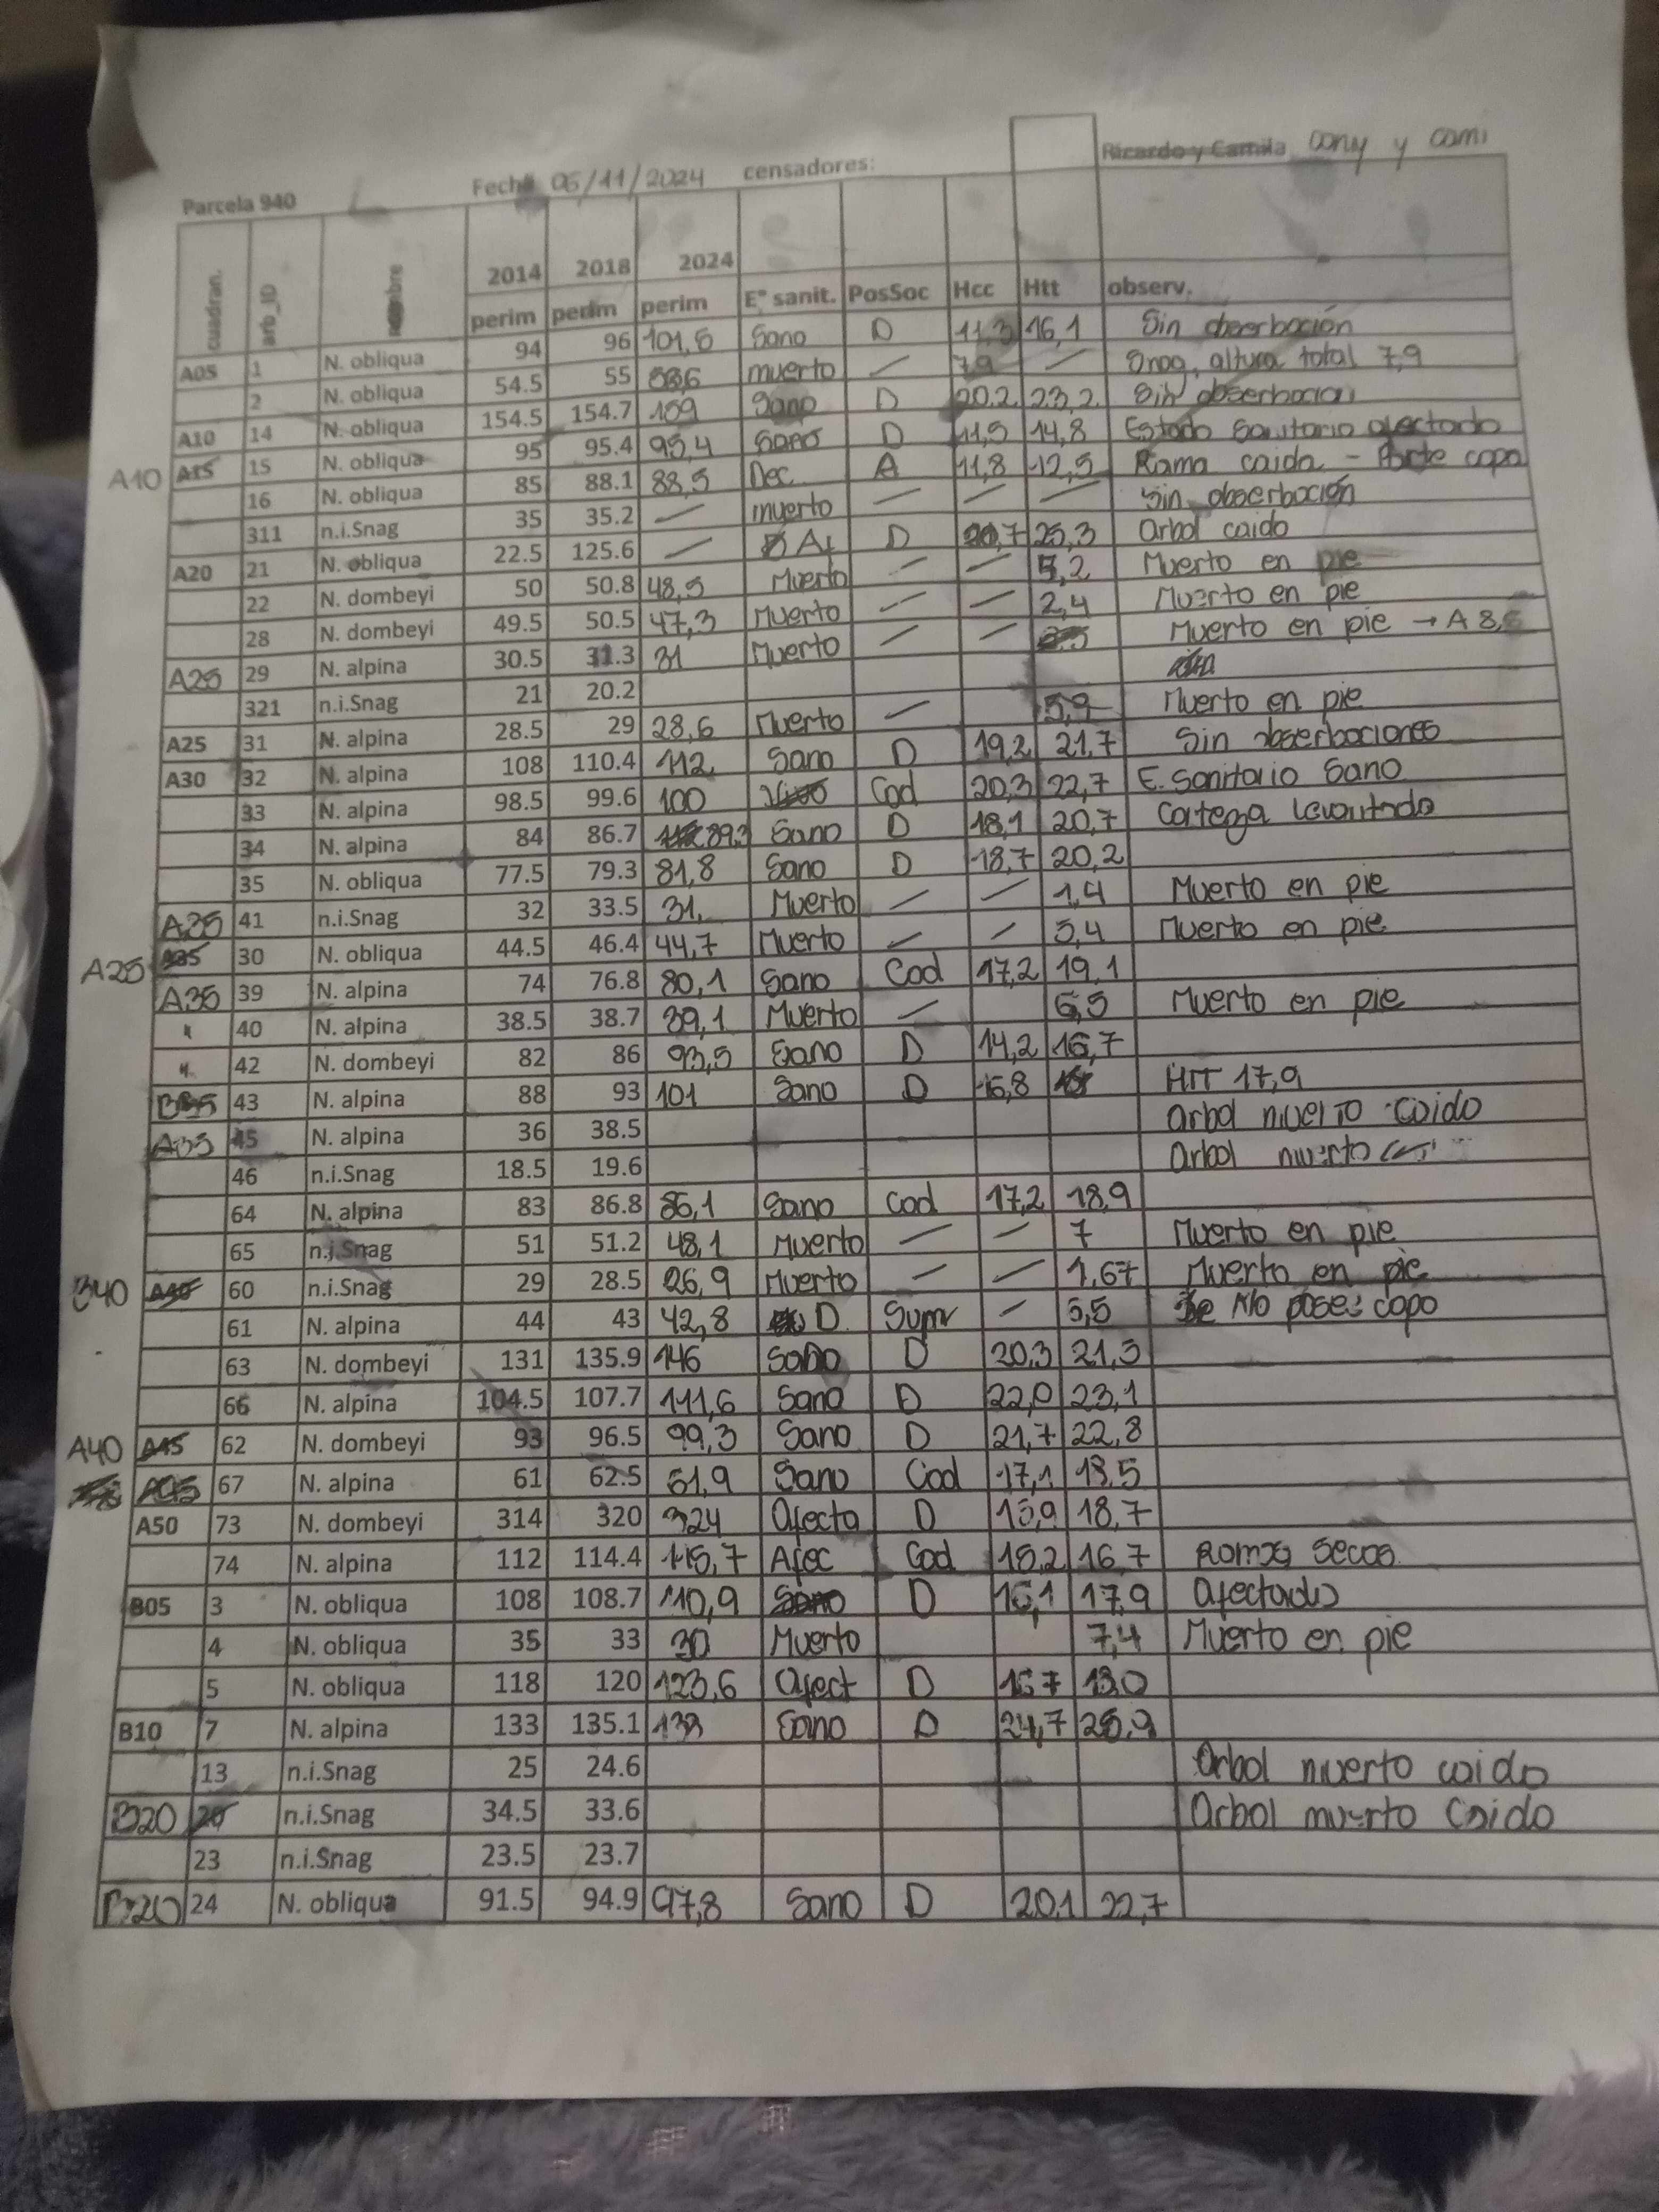 Ricardo y Camila cony y cami
Parcela 940 Fecha 05/11/2024 censadores:
cuadran. arb_ID 2014 2018 2024
perim perim E° sanit. PosSoc Hcc Htt observ.
A05 1 N. obliqua 94 96 101,5 Sano D 11,3 16,1 Sin obserbación
2 N. obliqua 54.5 55 muerto / 7,9 / altura total 7,9
A10 14 N. obliqua 154.5 154.7 159 Sano D 20,2 23,2 Sin obserbacion
A10 A15 15 N. obliqua 95 95.4 95,4 Sano D 11,5 14,8 Estado Sanitario afectado
16 N. obliqua 85 88.1 88,5 Dec A 11,8 12,5 Rama caida - Parte copa
311 n.i.Snag 35 35.2 / muerto / / / Sin obserbación
A20 21 N. obliqua 22.5 125.6 / Af D 20,7 25,3 Arbol caido
22 N. dombeyi 50 50.8 48,5 Muerto / / 5,2 Muerto en pie
28 N. dombeyi 49.5 50.5 47,3 Muerto / / 2,4 Muerto en pie
A25 29 N. alpina 30.5 31.3 31 Muerto / / Muerto en pie → A 8,5
321 n.i.Snag 21 20.2
A25 31 N. alpina 28.5 29 28,6 Muerto / 5,9 Muerto en pie
A30 32 N. alpina 108 110.4 112 Sano D 19,2 21,7 Sin obserbaciones
33 N. alpina 98.5 99.6 100 Cod 20,3 22,7 E. Sanitario Sano
34 N. alpina 84 86.7 89,3 Sano D 18,1 20,7 Corteza Levantada
35 N. obliqua 77.5 79.3 81,8 Sano D 18,7 20,2
A35 41 n.i.Snag 32 33.5 31, Muerto / / 1,4 Muerto en pie
A25 A35 30 N. obliqua 44.5 46.4 44,7 Muerto / / 5,4 Muerto en pie
A35 39 N. alpina 74 76.8 80,1 Sano Cod 17,2 19,1
" 40 N. alpina 38.5 38.7 39,1 Muerto / 6,5 Muerto en pie
" 42 N. dombeyi 82 86 93,5 Sano D 14,2 16,7
B35 43 N. alpina 88 93 101 Sano D 15,8 HTT 17,9
A35 45 N. alpina 36 38.5 Arbol muerto caido
46 n.i.Snag 18.5 19.6 Arbol muerto
64 N. alpina 83 86.8 86,1 Sano Cod 17,2 18,9
65 n.i.Snag 51 51.2 48,1 Muerto / / 7 Muerto en pie
B40 A40 60 n.i.Snag 29 28.5 26,9 Muerto / / 1,67 Muerto en pie
61 N. alpina 44 43 42,8 D Supr / 5,5 No posee copa
63 N. dombeyi 131 135.9 146 Sano D 20,3 21,3
66 N. alpina 104.5 107.7 111,6 Sano D 22,0 23,1
A40 A45 62 N. dombeyi 93 96.5 99,3 Sano D 21,7 22,8
A45 67 N. alpina 61 62.5 61,9 Sano Cod 17,1 18,5
A50 73 N. dombeyi 314 320 324 Afecta D 15,9 18,7
74 N. alpina 112 114.4 115,7 Afec Cod 15,2 16,7 Ramas Secas
B05 3 N. obliqua 108 108.7 110,9 Sano D 16,1 17,9 Afectado
4 N. obliqua 35 33 30 Muerto 7,4 Muerto en pie
5 N. obliqua 118 120 123,6 Afect D 18,0
B10 7 N. alpina 133 135.1 138 Sano D 24,7 25,9
13 n.i.Snag 25 24.6 Arbol muerto caido
B20 20 n.i.Snag 34.5 33.6 Arbol muerto Caido
23 n.i.Snag 23.5 23.7
B20 24 N. obliqua 91.5 94.9 97,8 Sano D 20,1 22,7